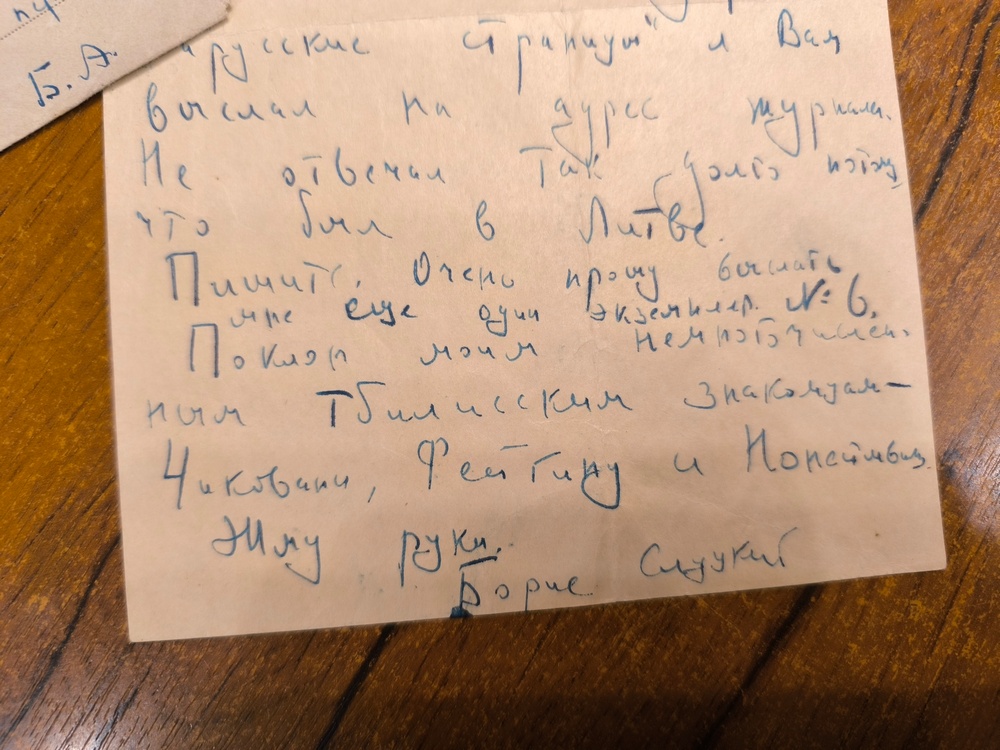 Б. А.
"русские страницы" я Вам
выслал на адрес журнала.
Не отвечал так долго потому,
что был в Литве.
Пишите. Очень прошу выслать
мне еще один экземпляр. № 6.
Поклон моим немногочислен-
ным тбилисским знакомцам —
Чиковани, Фейгину и
Жму руки.
Борис Слуцкий